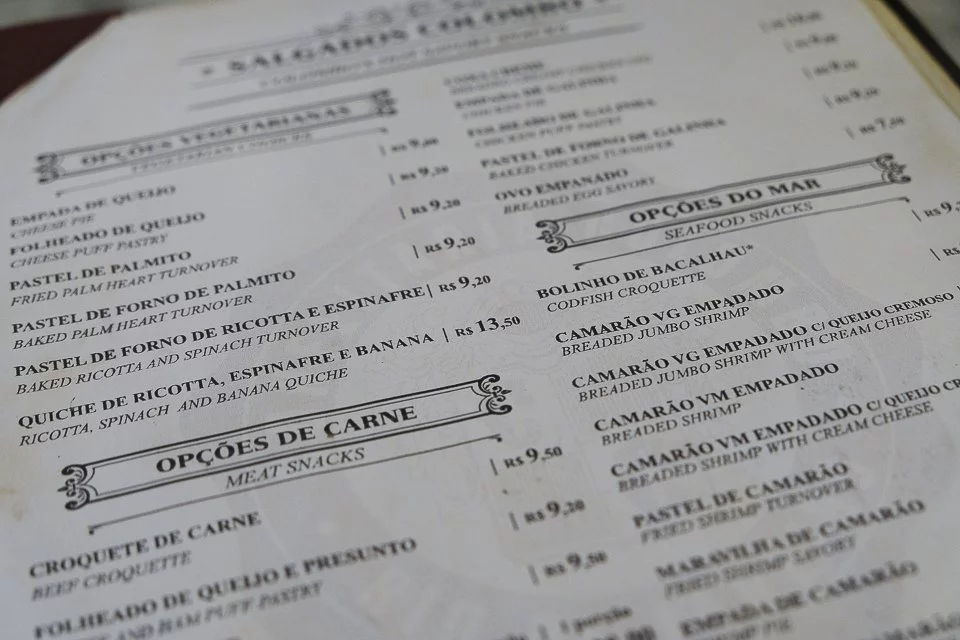 SALGADOS COLOMBO
OPÇÕES VEGETARIANAS
EMPADA DE QUEIJO | R$ 9,
CHEESE PIE
FOLHEADO DE QUEIJO | R$ 9,20
CHEESE PUFF PASTRY
PASTEL DE PALMITO | R$ 9,20
FRIED PALM HEART TURNOVER
PASTEL DE FORNO DE PALMITO | R$ 9,20
BAKED PALM HEART TURNOVER
PASTEL DE FORNO DE RICOTTA E ESPINAFRE | R$ 9,20
BAKED RICOTTA AND SPINACH TURNOVER
QUICHE DE RICOTTA, ESPINAFRE E BANANA | R$ 13,50
RICOTTA, SPINACH AND BANANA QUICHE
OPÇÕES DE CARNE
MEAT SNACKS
CROQUETE DE CARNE | R$ 9,50
BEEF CROQUETTE
FOLHEADO DE QUEIJO E PRESUNTO | R$ 9,20
AND HAM PUFF PASTRY
| R$ 9,50
EMPADA DE GALINHA
CHICKEN PIE
FOLHEADO DE GALINHA
CHICKEN PUFF PASTRY
PASTEL DE FORNO DE GALINHA
BAKED CHICKEN TURNOVER
OVO EMPANADO | R$ 7,
BREADED EGG SAVORY
OPÇÕES DO MAR
SEAFOOD SNACKS
BOLINHO DE BACALHAU* | R$ 9,
CODFISH CROQUETTE
CAMARÃO VG EMPADADO | R$
BREADED JUMBO SHRIMP
CAMARÃO VG EMPADADO C/ QUEIJO CREMOSO
BREADED JUMBO SHRIMP WITH CREAM CHEESE
CAMARÃO VM EMPADADO
BREADED SHRIMP
CAMARÃO VM EMPADADO C/ QUEIJO CR
BREADED SHRIMP WITH CREAM CHEESE
PASTEL DE CAMARÃO
FRIED SHRIMP TURNOVER
MARAVILHA DE CAMARÃO
FRIED SHRIMP SAVORY
EMPADA DE CAMARÃO
SHRIMP PIE